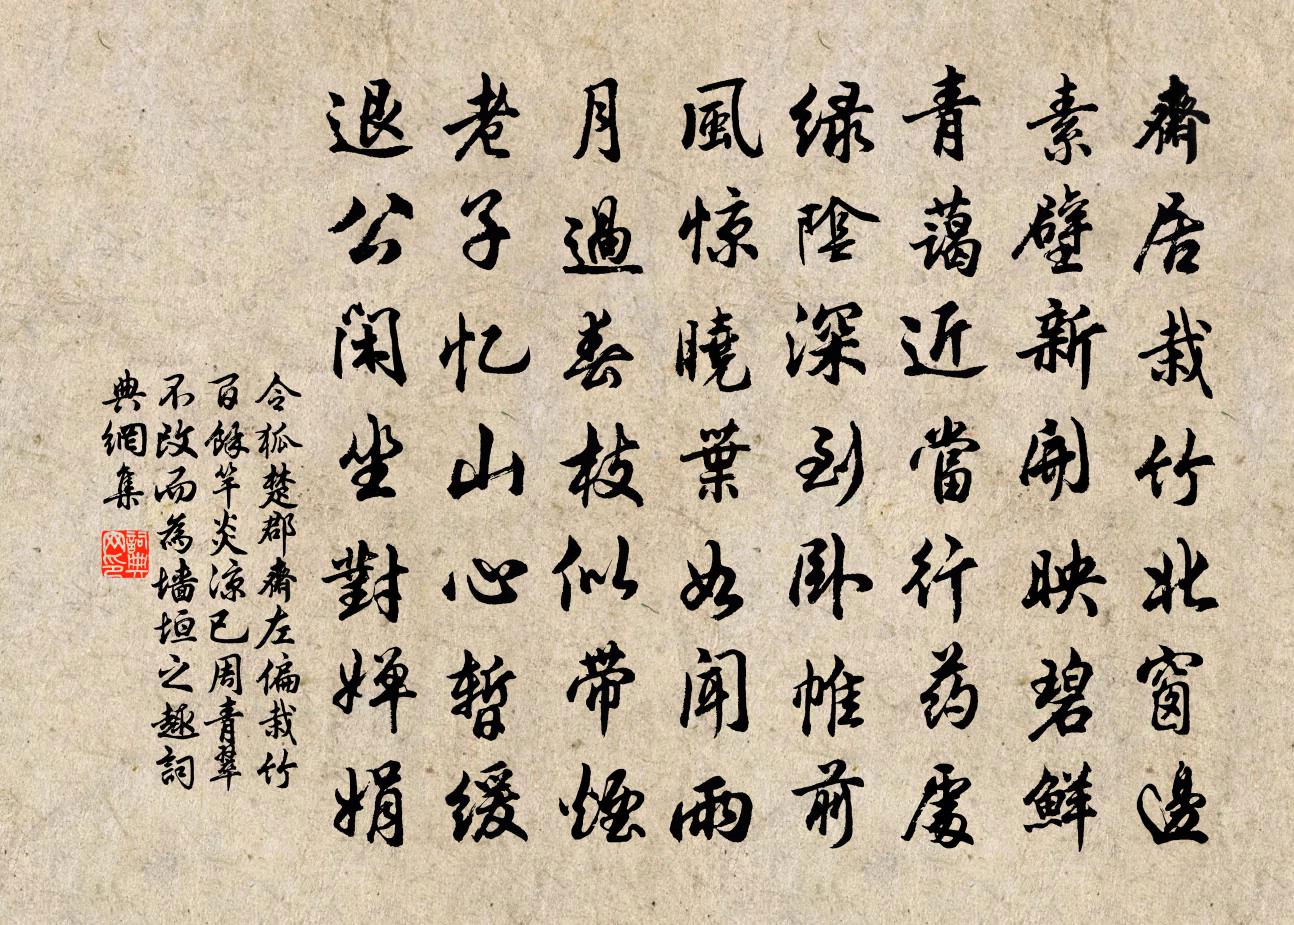 齋居栽竹北窗邊
素壁新開映碧鮮
青藹近當行药處
绿陰深到卧帷前
風惊曉葉如聞雨
月過春枝似带煙
老子忆山心暫缓
退公闲坐對婵娟
令狐楚郡齋左偏栽竹
百餘竿炎涼已周青翠
不改而為墻垣之趣詞
典網集
詞典
网印